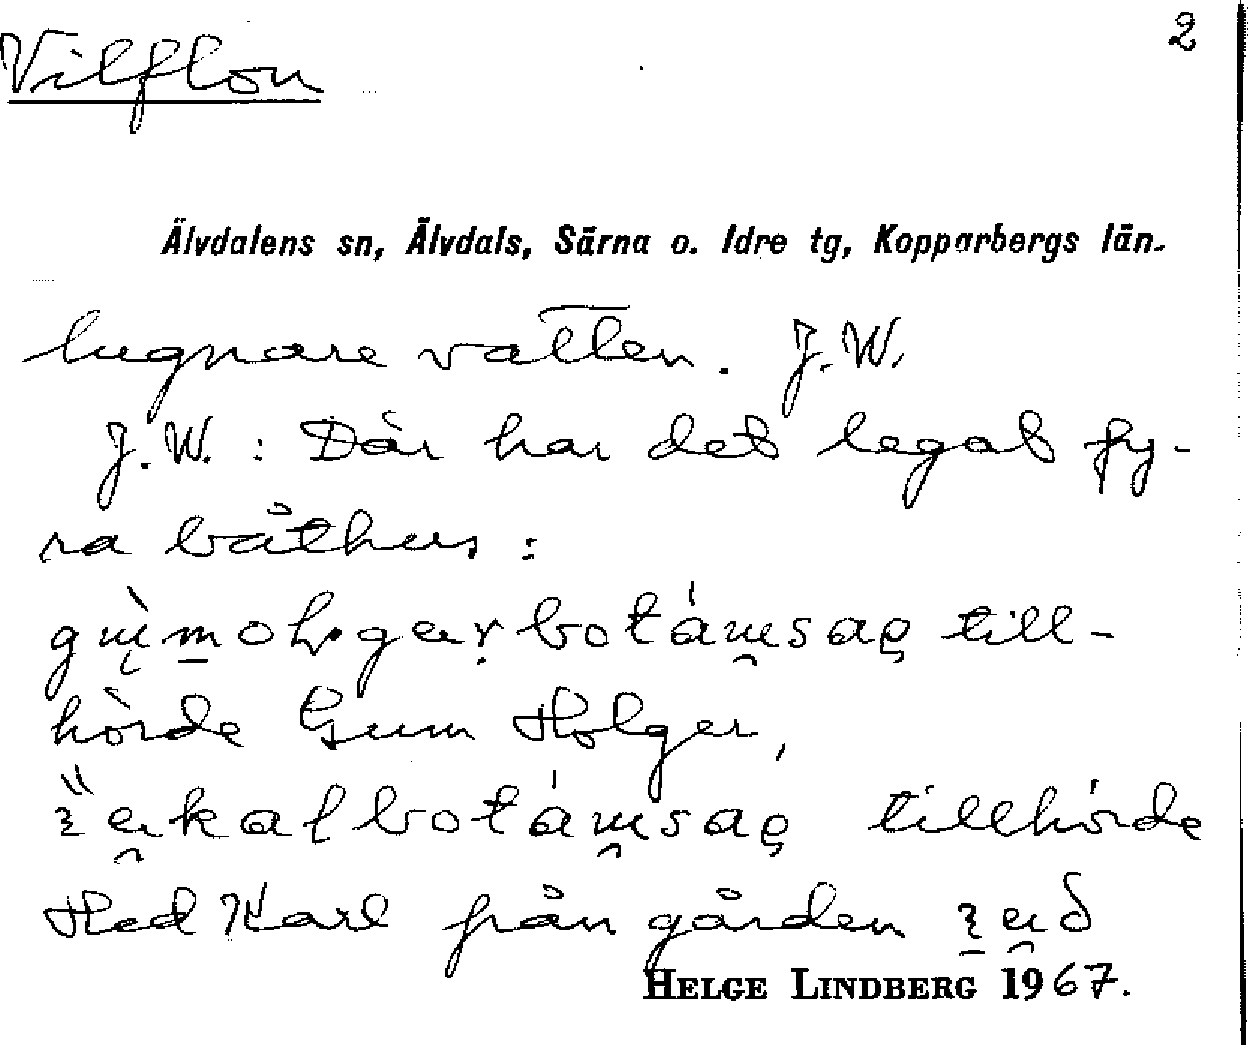 2
Vilflon
Älvdalens sn, Älvdals, Särna o. Idre tg, Kopparbergs län.
lugnare vatten. J.W.
J.W. : Där har det legat fy-
ra båthus :
till-
hörde Gum Holger,
tillhörde
Hed Karl från gården
HELGE LINDBERG 1967.